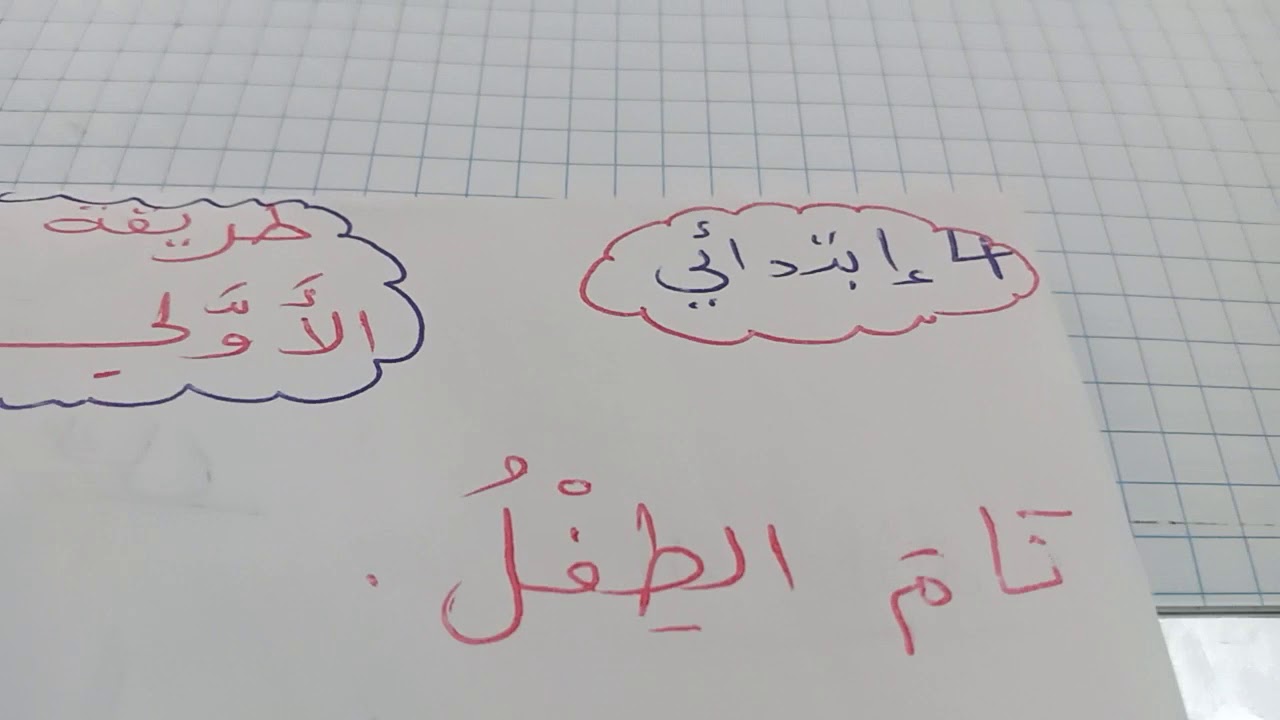 4 إبتدائي
طريقة
الأَوَّلى
نَامَ الطِفْلُ.